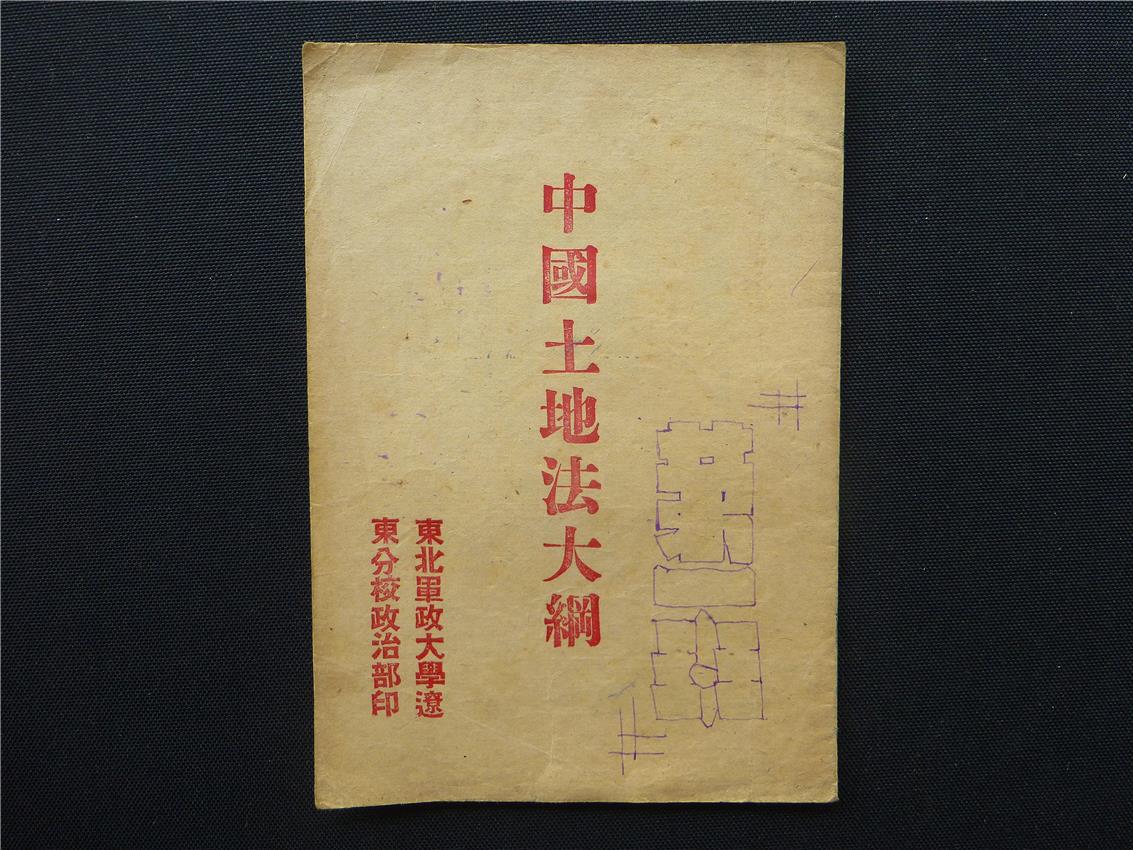 中國土地法大綱
東北軍政大學遼
東分校政治部印